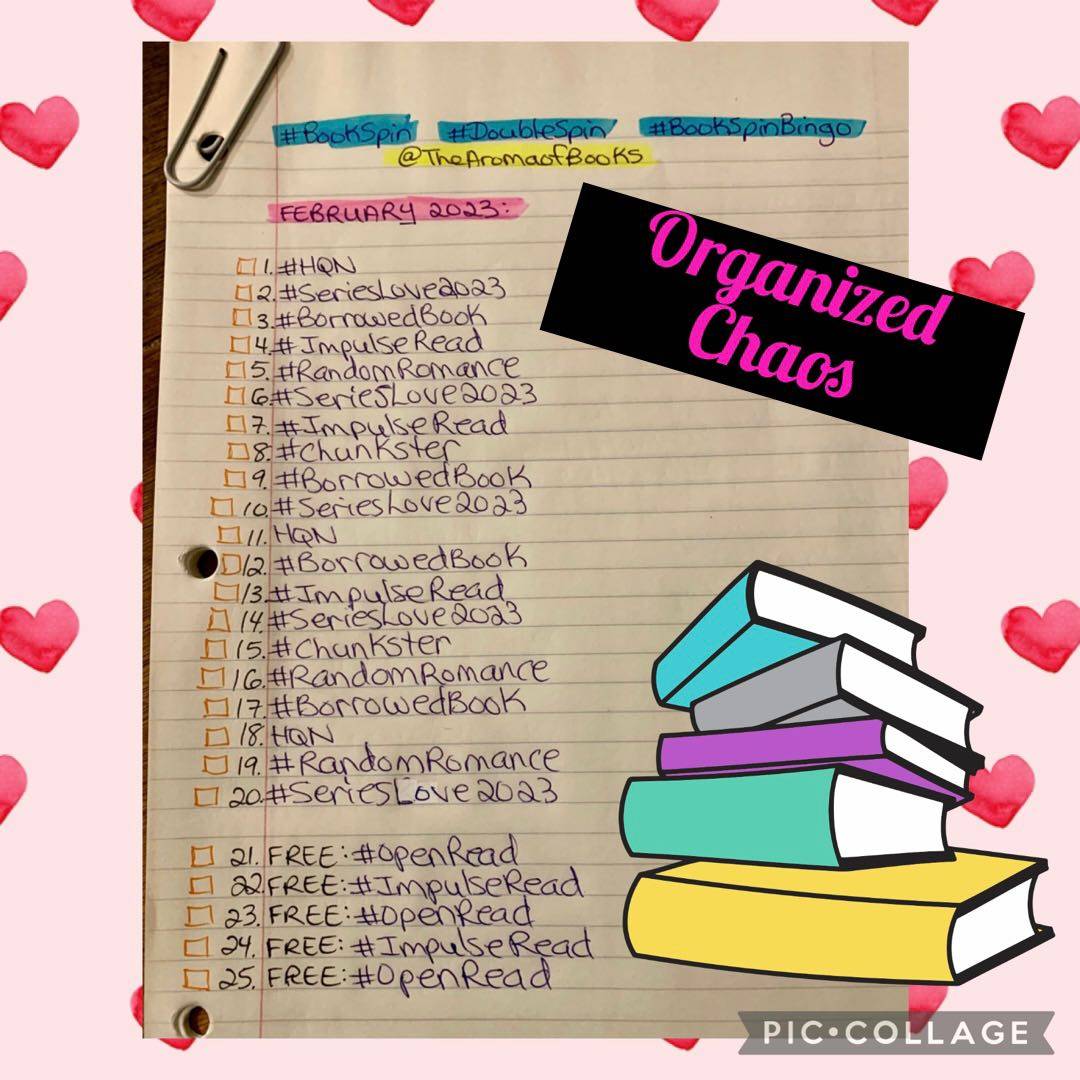 #BookSpin #DoubleSpin #BookSpinBingo
@TheAromaofBooks
FEBRUARY 2023:
Organized
Chaos
1. #HQN
2. #SeriesLove2023
3. #BorrowedBook
4. #ImpulseRead
5. #RandomRomance
6. #SeriesLove2023
7. #ImpulseRead
8. #Chunkster
9. #BorrowedBook
10. #SeriesLove2023
11. HQN
12. #BorrowedBook
13. #ImpulseRead
14. #SeriesLove2023
15. #Chunkster
16. #RandomRomance
17. #BorrowedBook
18. HQN
19. #RandomRomance
20. #SeriesLove2023
21. FREE: #OpenRead
22. FREE: #ImpulseRead
23. FREE: #OpenRead
24. FREE: #ImpulseRead
25. FREE: #OpenRead
PIC•COLLAGE